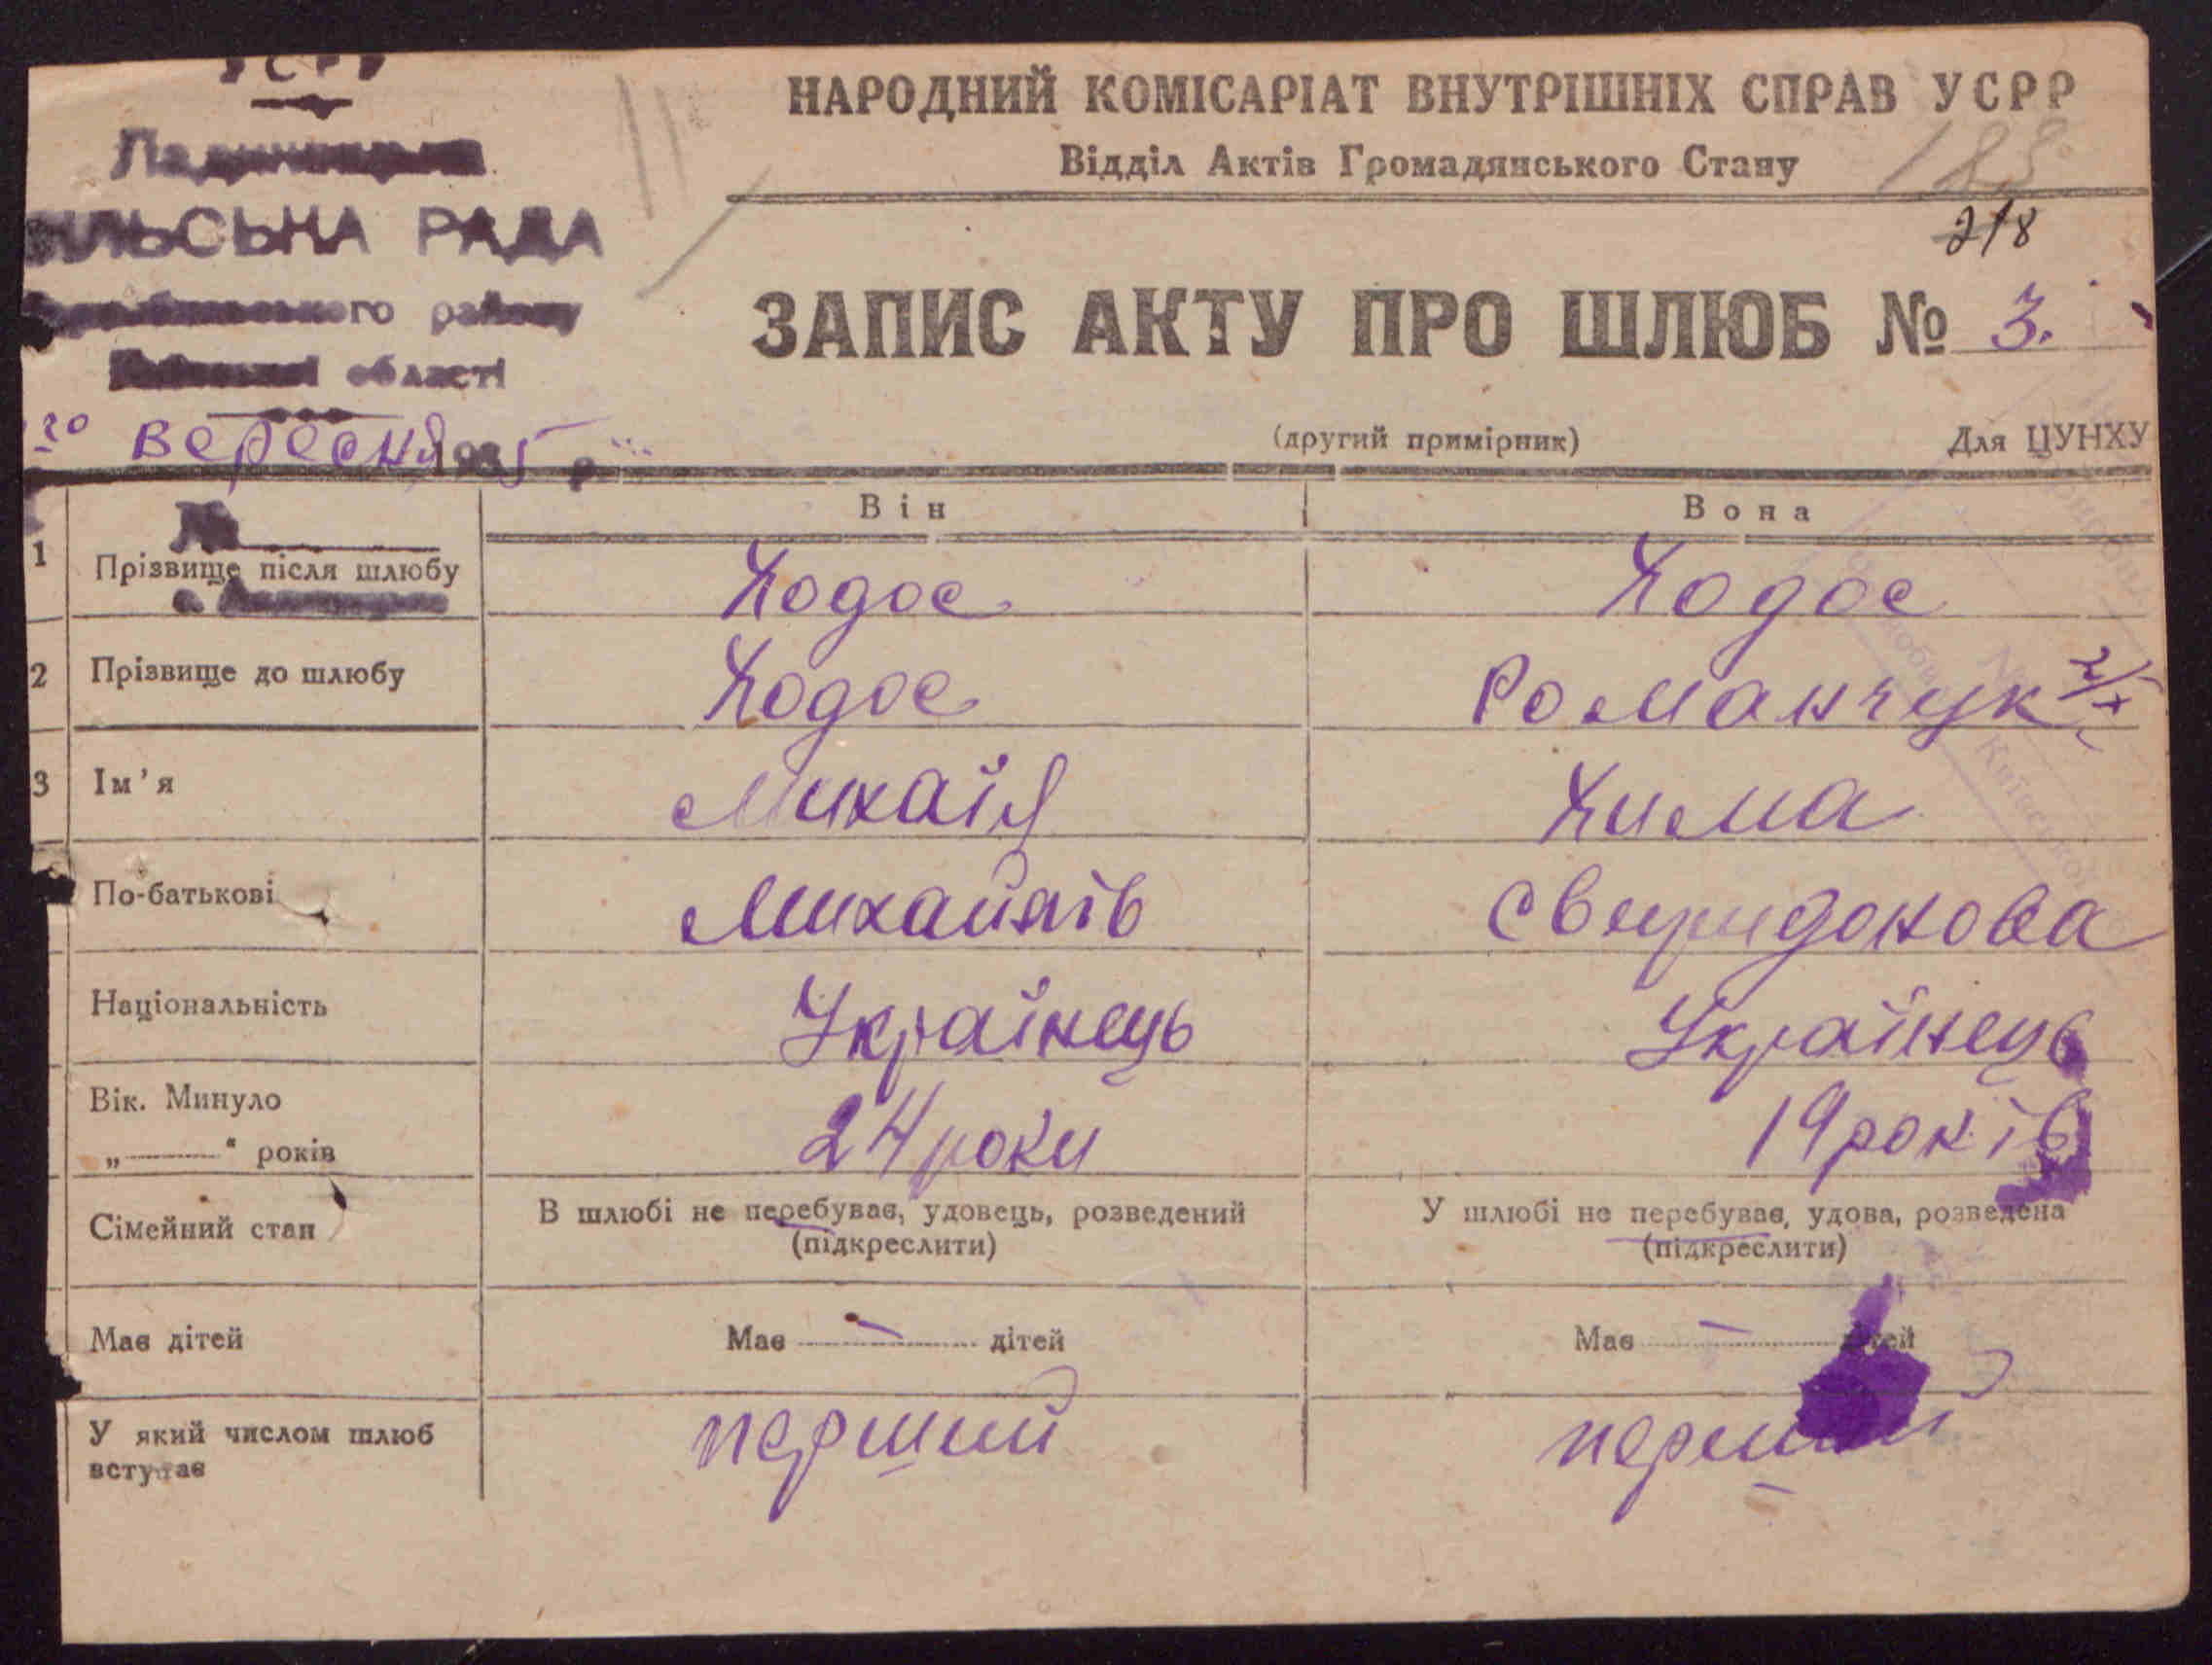 УСРР
СІЛЬСЬКА РАДА
району
області
НАРОДНИЙ КОМІСАРІАТ ВНУТРІШНІХ СПРАВ УСРР
Відділ Актів Громадянського Стану
183
218
ЗАПИС АКТУ ПРО ШЛЮБ № 3.
вересня 1935 р.
(другий примірник) Для ЦУНХУ
№
Він Вона
1 Прізвище після шлюбу Ходос Ходос
2 Прізвище до шлюбу Ходос Романчук
3 Ім'я Михаїл Хима
По-батькові Михайлів Свиридонова
Національність Українець Українець
Вік. Минуло
„ “ років 24 роки 19 років
Сімейний стан В шлюбі не перебуває, удовець, розведений У шлюбі не перебуває, удова, розведена
(підкреслити) (підкреслити)
Має дітей Має — дітей Має — дітей
У який числом шлюб
вступає перший перший